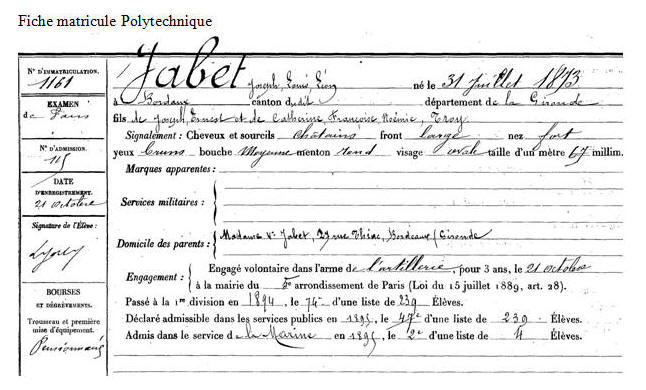 Fiche matricule Polytechnique
Jabet Joseph, Louis, Léon né le 31 Juillet 1873
à Bordeaux canton dudit département de la Gironde
fils de Joseph, Ernest et de Catherine, Françoise, Noémie, Troy
Signalement: Cheveux et sourcils châtains front large nez fort
yeux bruns bouche Moyenne menton rond visage ovale taille d'un mètre 67 millim.
Marques apparentes:
Services militaires:
Domicile des parents: Madame Vve Jabet, 29 rue Thiac, Bordeaux (Gironde
Engagement: Engagé volontaire dans l'arme de l'artillerie, pour 3 ans, le 21 octobre
à la mairie du 5e arrondissement de Paris (Loi du 15 juillet 1889, art. 28).
Passé à la 1re division en 1894, le 74e d'une liste de 239 Élèves.
Déclaré admissible dans les services publics en 1895, le 47e d'une liste de 239 Élèves.
Admis dans le service de la Marine en 1895, le 2e d'une liste de 4 Élèves.
N° D'IMMATRICULATION.
1161
EXAMEN
de Paris
N° D'ADMISSION.
115
DATE
D'ENREGISTREMENT.
21 octobre
Signature de l'Élève:
BOURSES
ET DÉGRÈVEMENTS.
Trousseau et première
mise d'équipement.
Pensionnaire